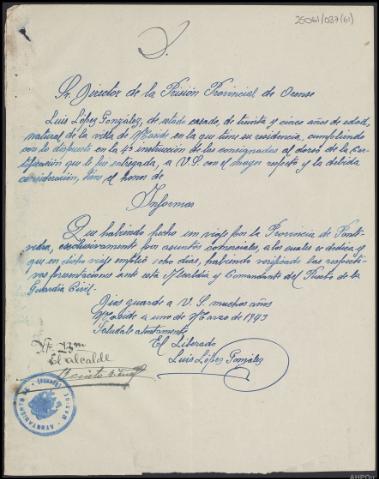 25041/027(61)
Sr. Director de la Prisión Provincial de Orense
Luis López González, de estado casado, de treinta y cinco años de edad,
natural de la villa de Maside en la que tiene su residencia, cumpliendo
con lo dispuesto en la 4ª instrucción de las consignadas al dorso de la Cer-
tificación que le fue entregada, a V.S. con el mayor respeto y la debida
consideración, tiene el honor de
Informar
Que habiendo hecho un viaje por la Provincia de Ponte-
vedra, exclusivamente por asuntos comerciales, a los cuales se dedica y que
en dicho viaje empleó ocho días, habiendo verificado las respecti-
vas presentaciones ante esta Alcaldía y Comandante del Puesto de la
Guardia Civil.
Dios guarde a V.S. muchos años
Maside a uno de Marzo de 1943
Salúdale atentamente
El Liberado
Luis López González
Vº Bº
El alcalde